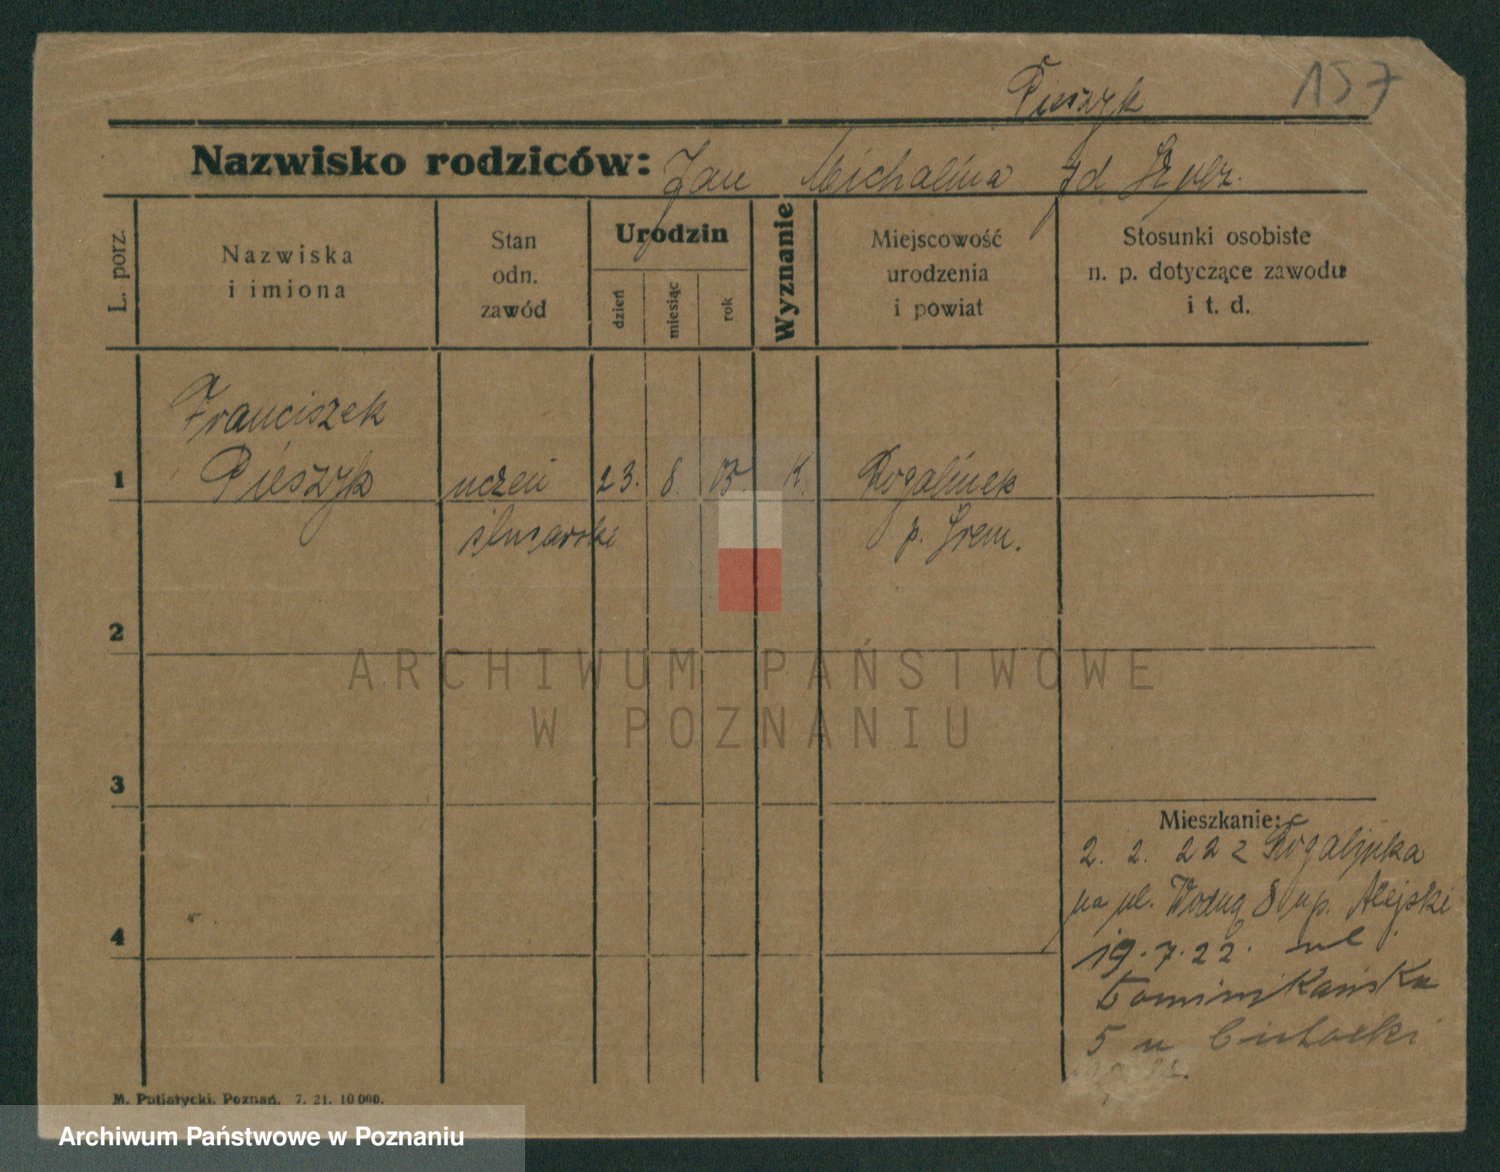 Pieszyk 157
Nazwisko rodziców: Jan Michalina zd
L. porz.
Nazwiska
i imiona
Stan
odn.
zawód
Urodzin
dzień
miesiąc
rok
Wyznanie
Miejscowość
urodzenia
i powiat
Stosunki osobiste
n. p. dotyczące zawodu
i t. d.
Franciszek
1 Pieszyk uczeń 23. 8. 05. K. Rogalinek
ślusarski p. Śrem.
2
ARCHIWUM PAŃSTWOWE
W POZNANIU
3
Mieszkanie:
2. 2. 22 z Rogalinka
na ul. Wodną 8 u p. Alejski
4
19.7.22. ul.
Dominikańska
5 u
M. Putiatycki, Poznań. 7. 21. 10 000.
Archiwum Państwowe w Poznaniu